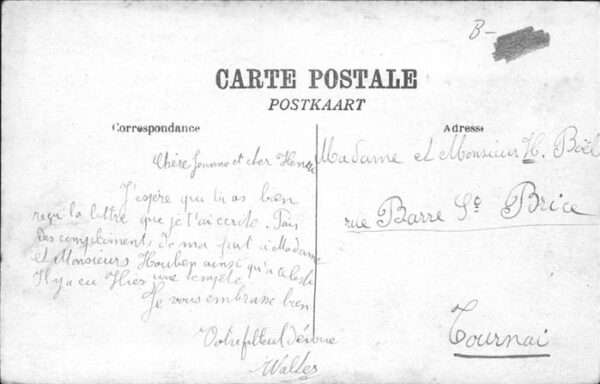 B-
CARTE POSTALE
POSTKAART
Correspondance
Adresse
Chère et cher Henri
J'espère que tu as bien
reçu la lettre que je t'ai Fais
des compliments de ma part à Madame
et Monsieurs Houben ainsi qu'a
Il y a eu Hier une tempête
Je vous embrasse bien
Votre filleul dévoué
Walter
Madame et Monsieur H. Boël
rue Barre St Brice
Tournai